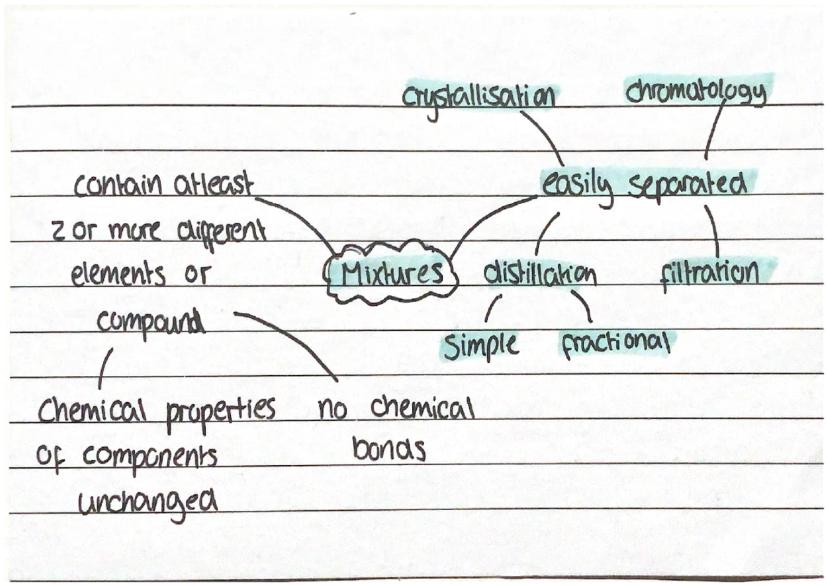 crystallisation
chromatology
easily separated
contain atleast
2 or more different
elements or
compound
Mixtures
distillation
filtration
Simple
fractional
Chemical properties
of components
unchanged
no chemical
bonds